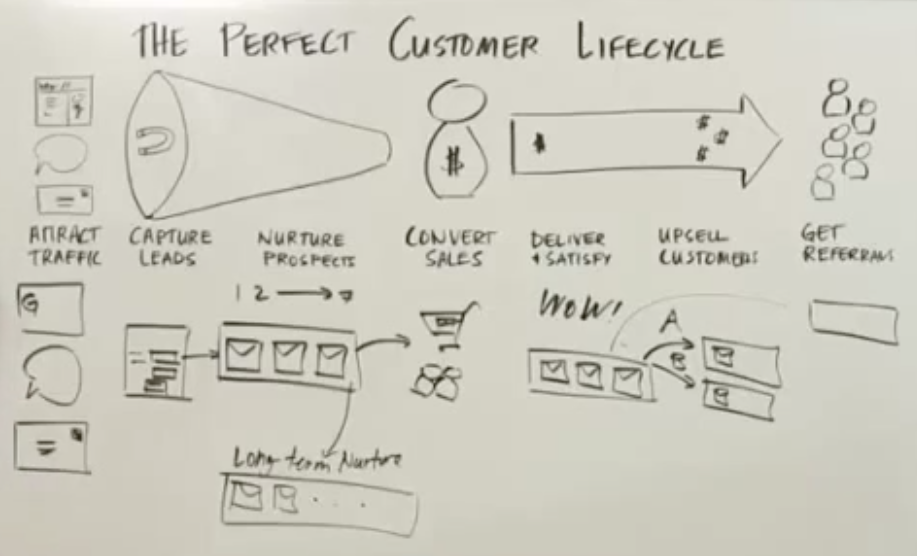 THE PERFECT CUSTOMER LIFECYCLE
$
$
$
$
$
ATTRACT
TRAFFIC
CAPTURE
LEADS
NURTURE
PROSPECTS
CONVERT
SALES
DELIVER
+ SATISFY
UPSELL
CUSTOMERS
GET
REFERRALS
G
1 2
WOW!
A
B
Long term Nurture